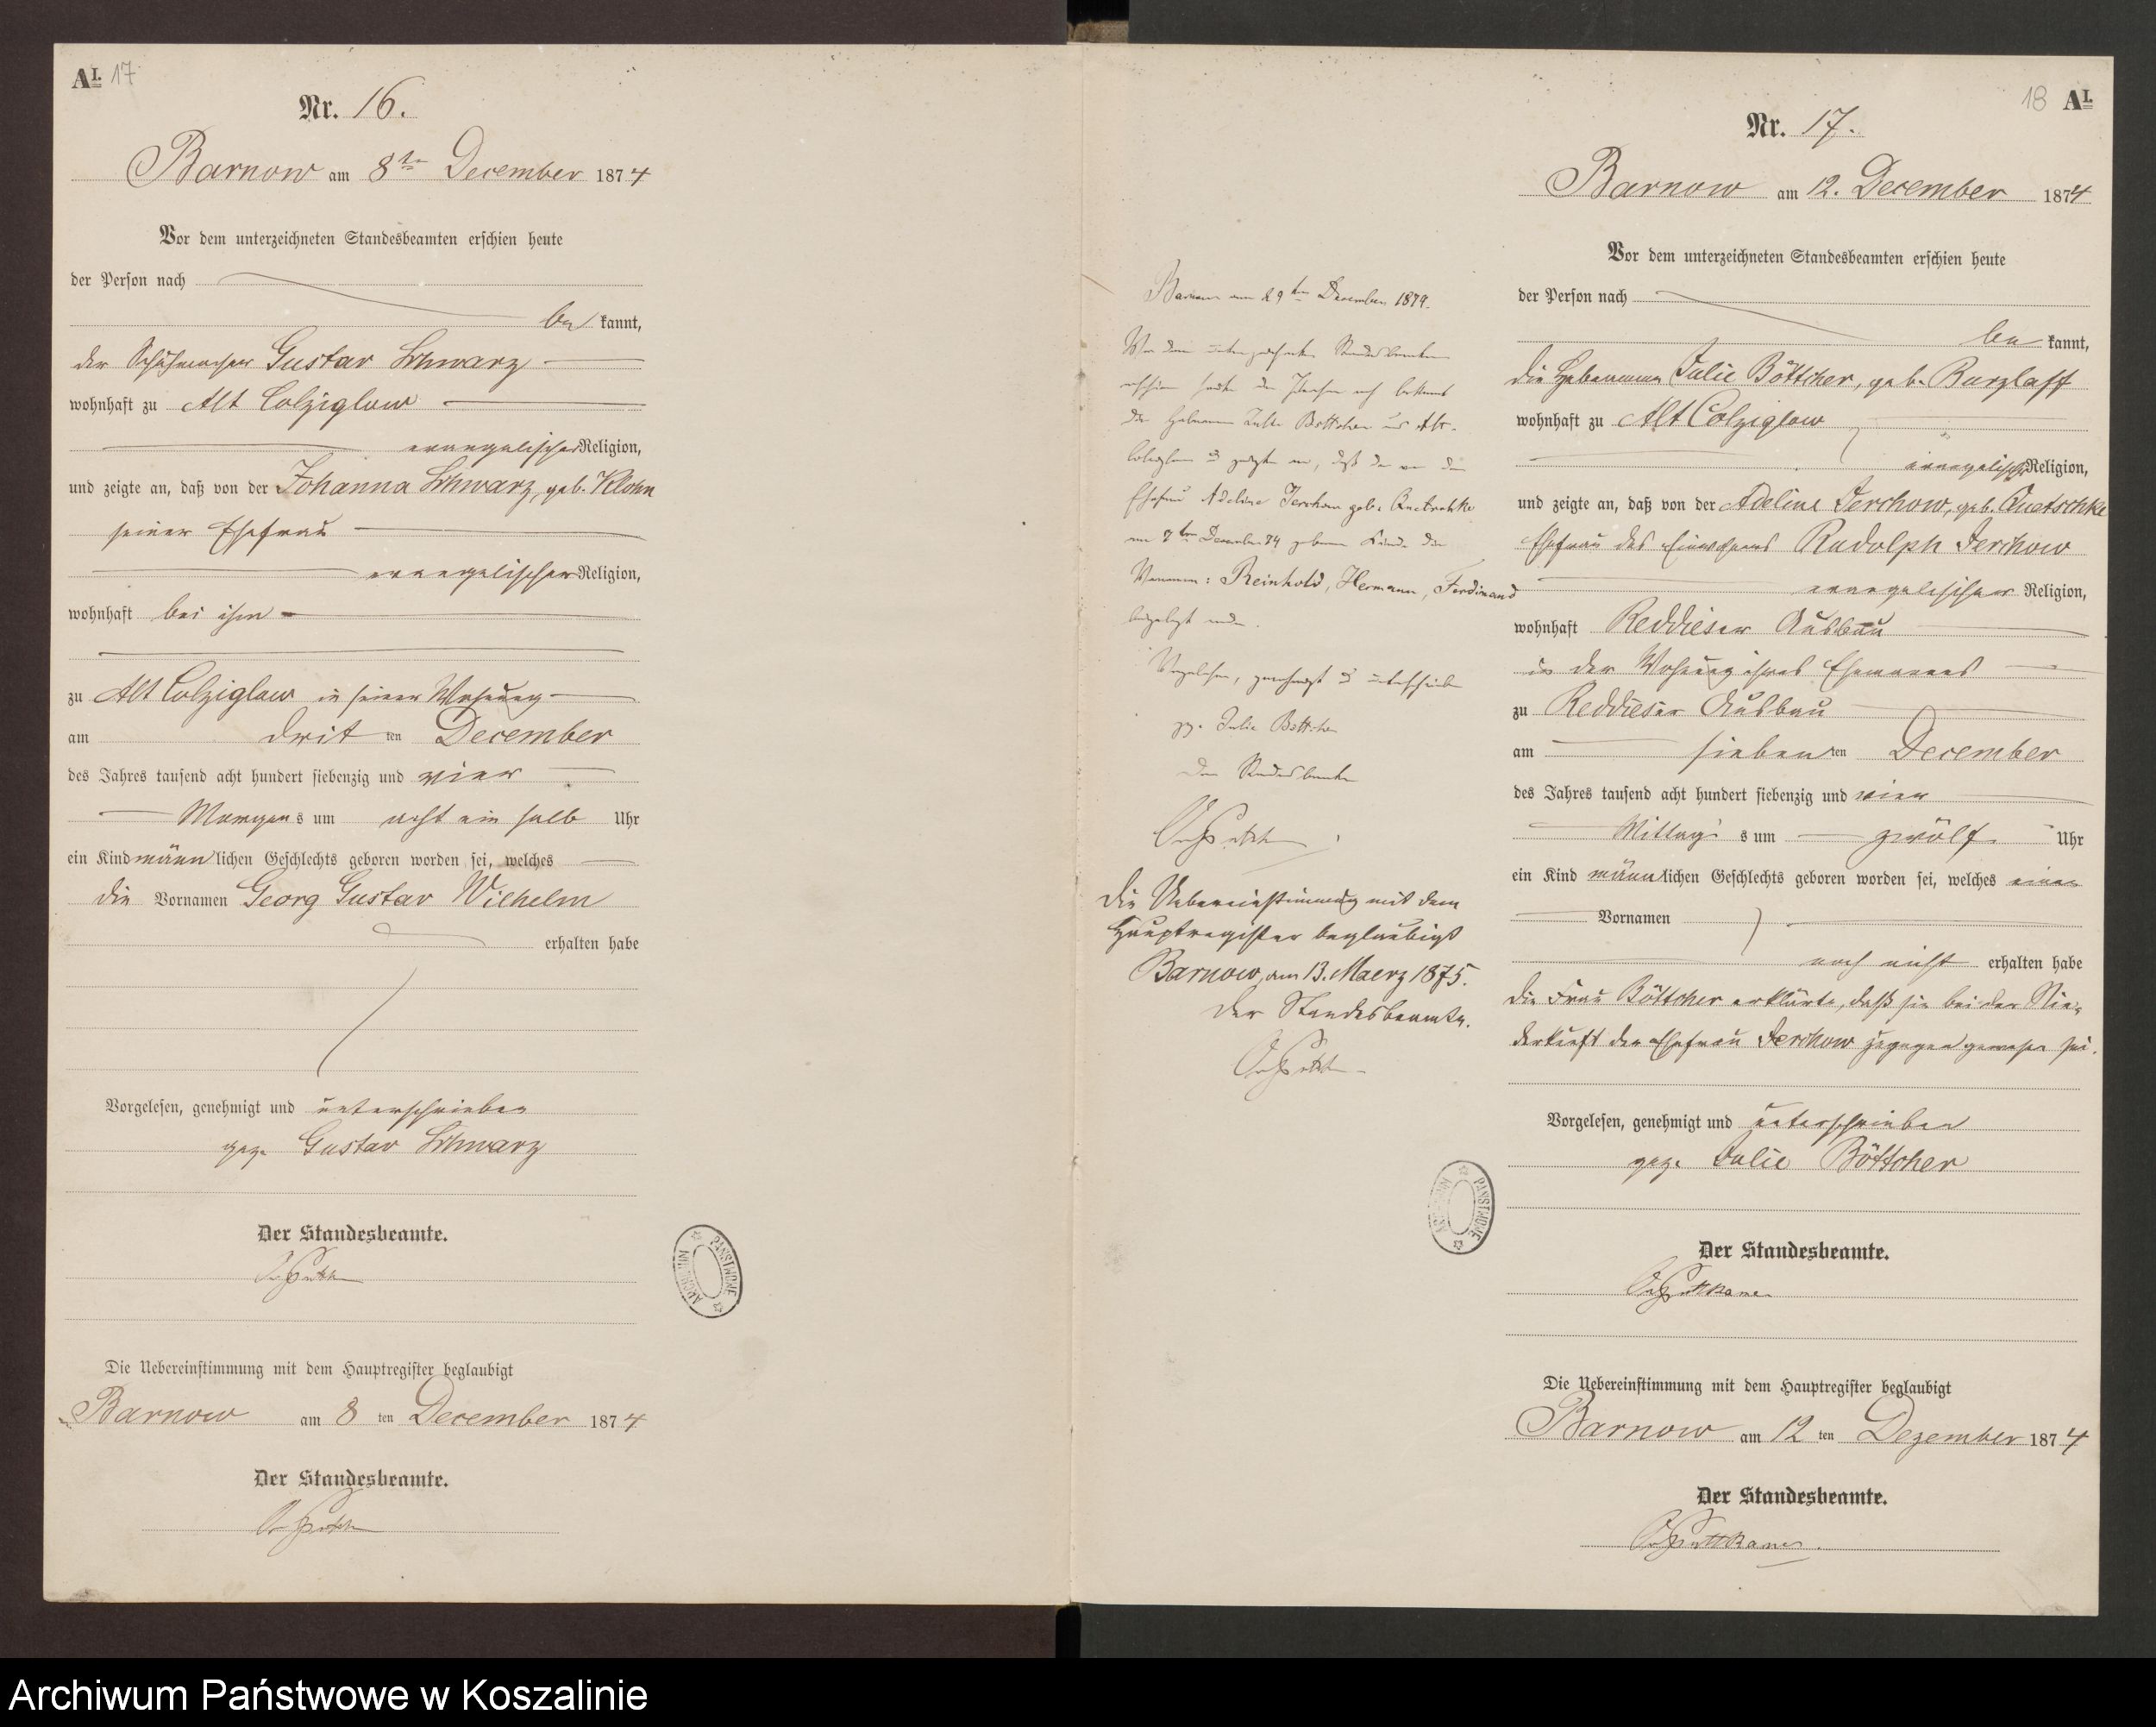 AI. 17
Nr. 16.
Barnow am 8ten December 1874
Vor dem unterzeichneten Standesbeamten erschien heute
der Person nach
be kannt,
der Schuhmacher Gustav Schwarz
wohnhaft zu Alt Colziglow
evangelischer Religion,
und zeigte an, daß von der Johanna Schwarz, geb. Klohn
seiner Ehefrau
evangelischer Religion,
wohnhaft bei ihm
zu Alt Colziglow in seiner Wohnung
am dritten December
des Jahres tausend acht hundert siebenzig und vier
Morgens um acht ein halb Uhr
ein Kind männlichen Geschlechts geboren worden sei, welches
die Vornamen Georg Gustav Wilhelm
erhalten habe
Vorgelesen, genehmigt und unterschrieben
gez. Gustav Schwarz
Der Standesbeamte.
Die Uebereinstimmung mit dem Hauptregister beglaubigt
Barnow am 8 ten December 1874
Der Standesbeamte.
ARCHIWUM PAŃSTWOWE
18 AI.
Nr. 17.
Barnow am 12. December 1874
Vor dem unterzeichneten Standesbeamten erschien heute
der Person nach
be kannt,
die Hebamme Julie Böttcher, geb. Barzlaff
wohnhaft zu Alt Colziglow
evangelischer Religion,
und zeigte an, daß von der Adeline Jerchow, geb. Quetschke
Ehefrau des Einwohners Rudolph Jerchow
evangelischer Religion,
wohnhaft Reddieser Ausbau
in der Wohnung ihres Ehemannes
zu Reddieser Ausbau
am siebenten December
des Jahres tausend acht hundert siebenzig und vier
Mittags um zwölf Uhr
ein Kind männlichen Geschlechts geboren worden sei, welches einen
Vornamen
noch nicht erhalten habe
Die Frau Böttcher erklärte, daß sie bei der Nie-
derkunft der Ehefrau Jerchow zugegen gewesen sei.
Vorgelesen, genehmigt und unterschrieben
gez. Julie Böttcher
Der Standesbeamte.
v. Puttkamer
Die Uebereinstimmung mit dem Hauptregister beglaubigt
Barnow am 12 ten Dezember 1874
Der Standesbeamte.
v. Puttkamer.
Barnow am 29ten December 1874.
Vor dem unterzeichneten Standesbeamten
erschien heute der Person nach bekannt
die Hebamme Julie Böttcher aus Alt-
Colziglow u zeigte an, daß der von der
Ehefrau Adeline Jerchow geb. Quetschke
am 7ten December 74 geborene Kinde die
Vornamen: Reinhold, Hermann, Ferdinand
beigelegt
Vorgelesen, genehmigt u unterschrieben
gez. Julie Böttcher
Der Standesbeamte
Die Uebereinstimmung mit dem
Hauptregister beglaubigt
Barnow, am 13. Maerz 1875.
Der Standesbeamte.
ARCHIWUM PAŃSTWOWE
Archiwum Państwowe w Koszalinie